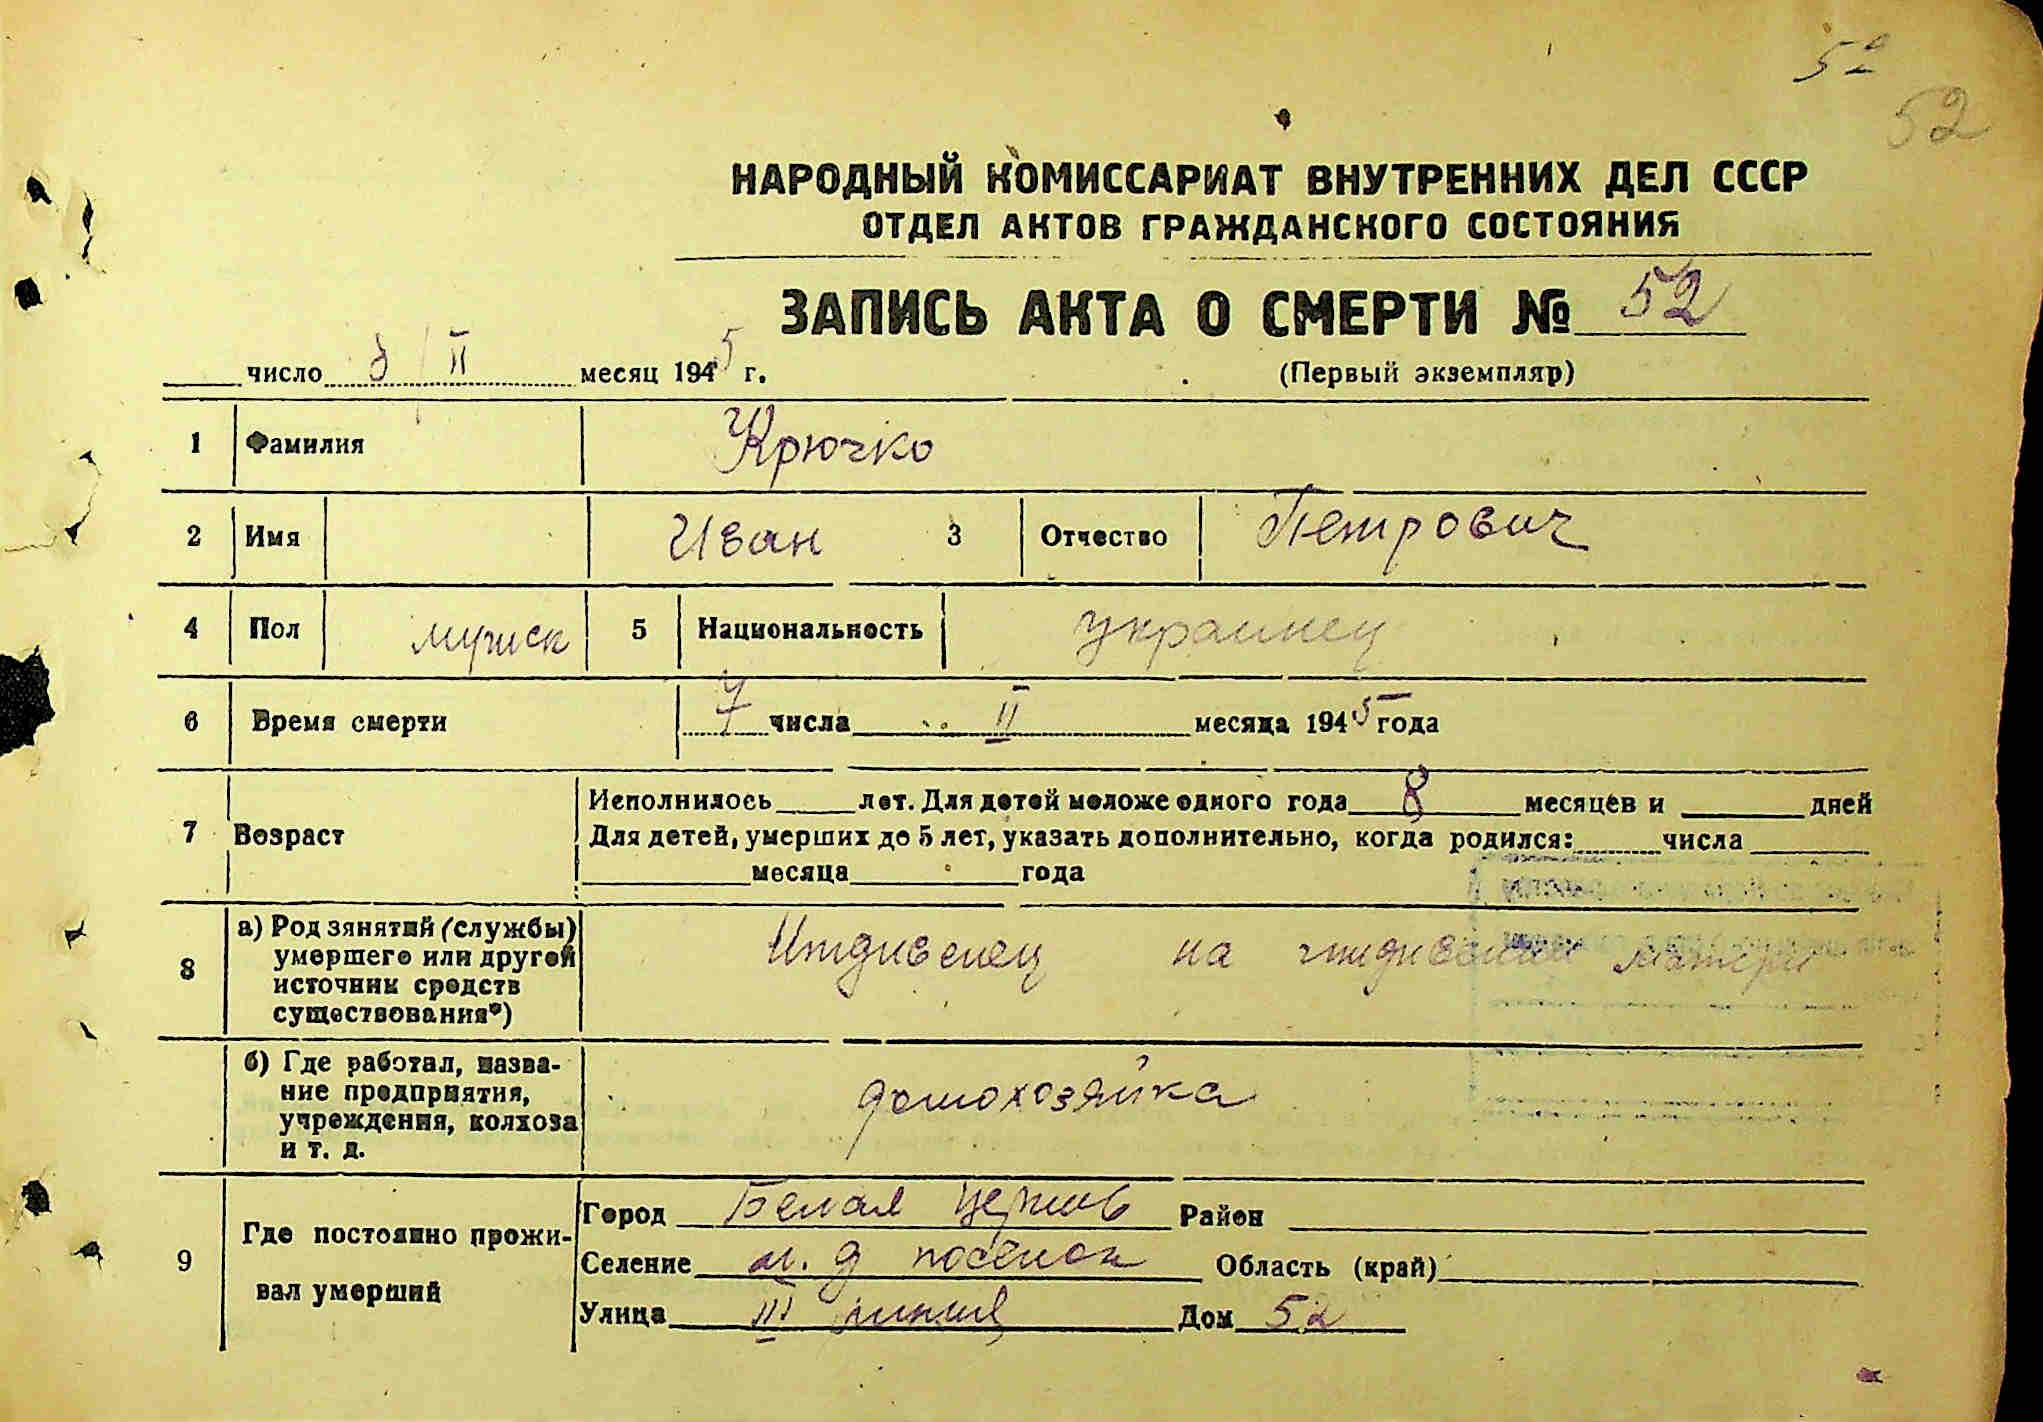 52
52
НАРОДНЫЙ КОМИССАРИАТ ВНУТРЕННИХ ДЕЛ СССР
ОТДЕЛ АКТОВ ГРАЖДАНСКОГО СОСТОЯНИЯ
ЗАПИСЬ АКТА О СМЕРТИ № 52
число 8/II месяц 1945 г.
(Первый экземпляр)
1 Фамилия Крючко
2 Имя Иван 3 Отчество Петрович
4 Пол мужск 5 Национальность украинец
6 Время смерти 7 числа II месяца 1945 года
7 Возраст
Исполнилось лет. Для детей моложе одного года 8 месяцев и дней
Для детей, умерших до 5 лет, указать дополнительно, когда родился: числа
месяца года
8 а) Род занятий (службы) умершего или другой источник средств существования*)
Иждивенец на матери
б) Где работал, название предприятия, учреждения, колхоза и т. д.
домохозяйка
9 Где постоянно проживал умерший
Город Белая Церковь Район
Селение м. д поселок Область (край)
Улица III линия Дом 52